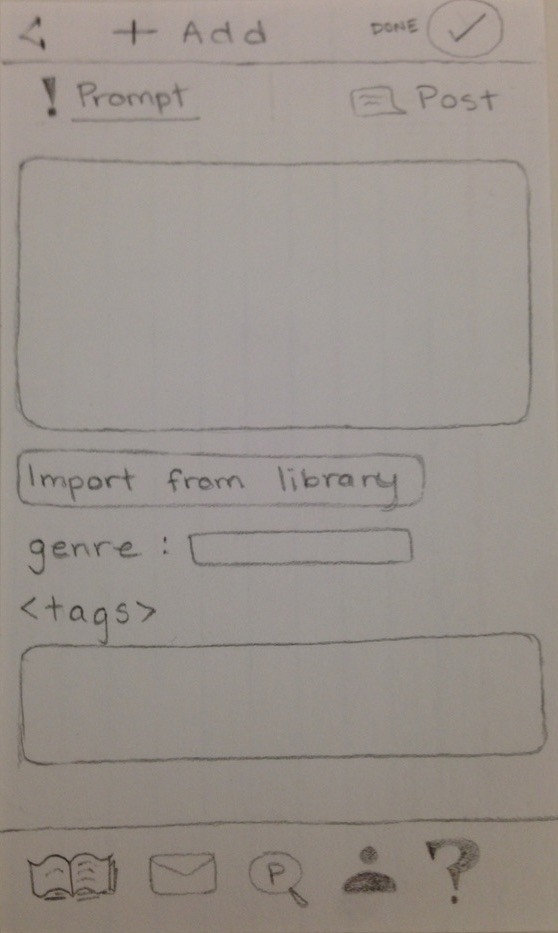 < + Add DONE ✓
! Prompt Post
Import from library
genre :
<tags>
P ?